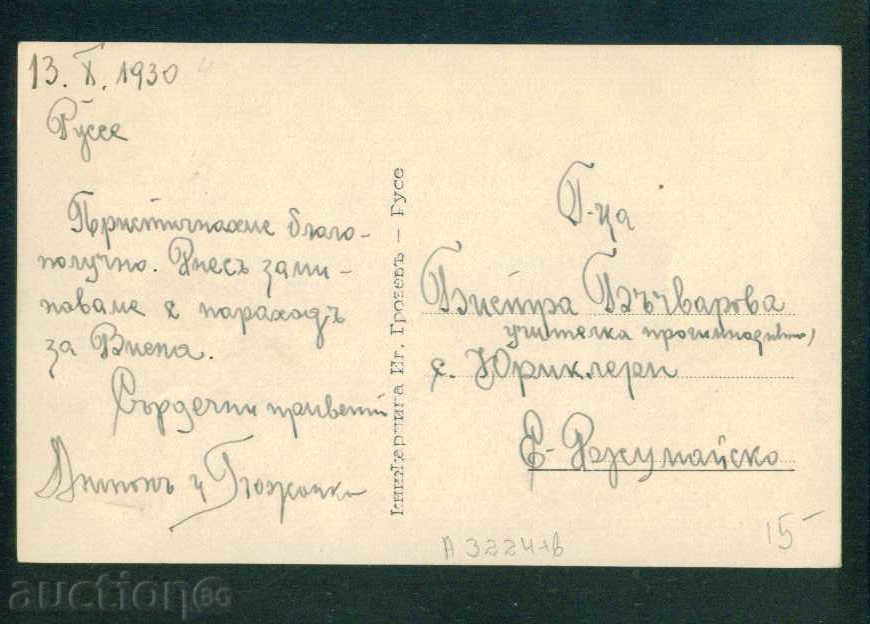 13. X. 1930
Руссе
Пристигнахме благо-
получно. Днесъ зами-
наваме с параходъ
за Виена.
Сърдечни привети
Антонъ и
Книжарница Иг. Грозевъ — Русе
Г-ца
Бистра Бъчварова
учителка прогимназията
с. Юриклери
Е-Джумайско
А 3224-в
15-
auctionBG